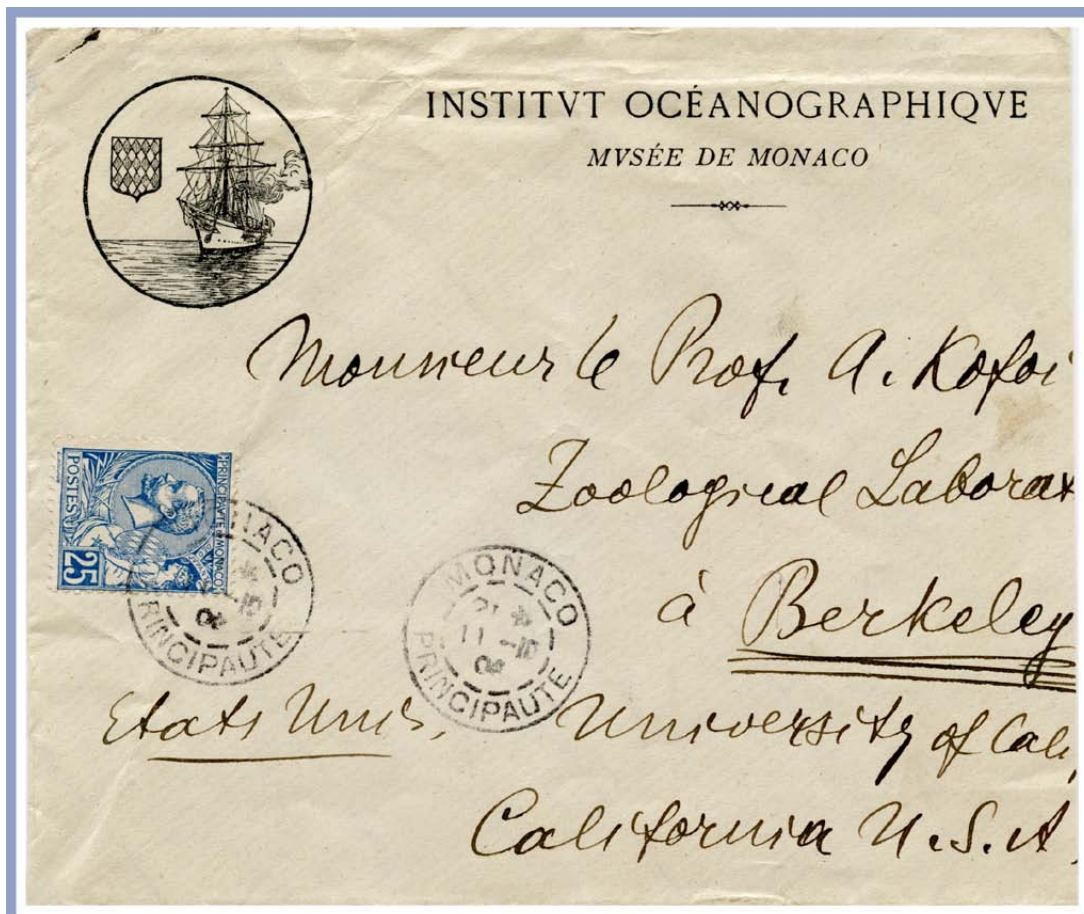 INSTITVT OCÉANOGRAPHIQVE
MVSÉE DE MONACO
Monsieur le Prof. A. Kofoi
Zoological Laborat
à Berkeley
Etats Unis, University of Cali
California U.S.A
PRINCIPAUTÉ DE MONACO
POSTES
25
MONACO
PRINCIPAUTÉ
MONACO
11
PRINCIPAUTÉ